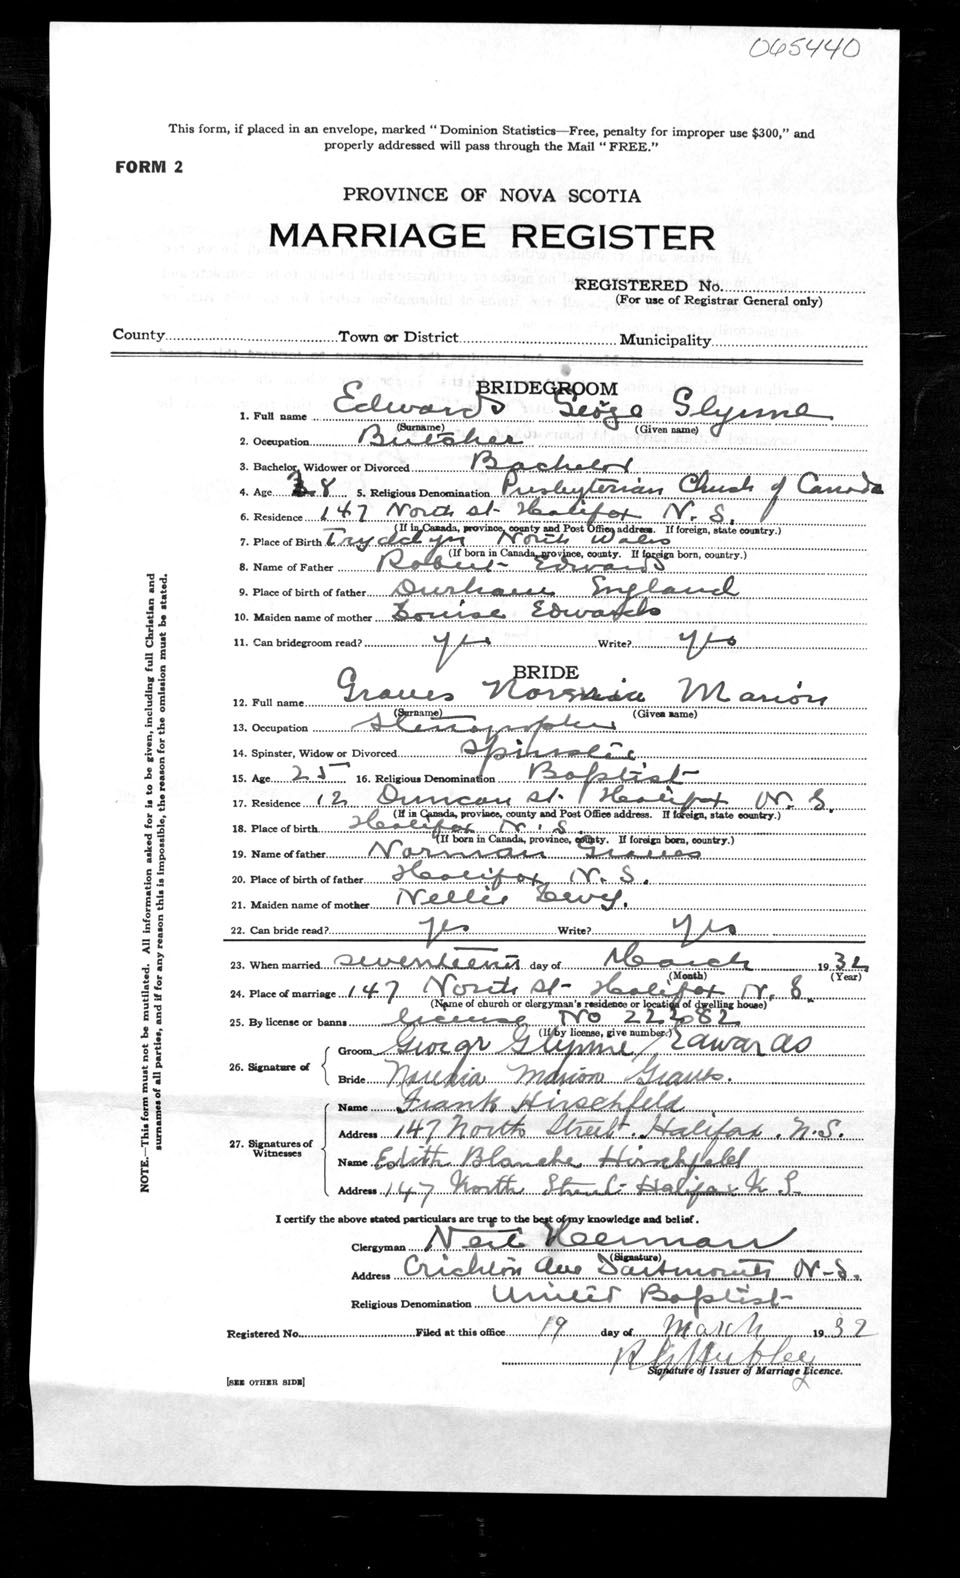 065440
This form, if placed in an envelope, marked "Dominion Statistics—Free, penalty for improper use $300," and
properly addressed will pass through the Mail "FREE."
FORM 2
PROVINCE OF NOVA SCOTIA
MARRIAGE REGISTER
REGISTERED No.
(For use of Registrar General only)
County Town or District Municipality
BRIDEGROOM
1. Full name Edwards George Glynne
(Surname) (Given name)
2. Occupation Butcher
3. Bachelor, Widower or Divorced Bachelor
4. Age 38 5. Religious Denomination Presbyterian Church of Canada
6. Residence 147 North St. Halifax N. S.
(If in Canada, province, county and Post Office address. If foreign, state country.)
7. Place of Birth Tryddyn North Wales
(If born in Canada, province, county. If foreign born, country.)
8. Name of Father Robert Edwards
9. Place of birth of father Durham England
10. Maiden name of mother Louise Edwards
11. Can bridegroom read? yes Write? yes
BRIDE
12. Full name Graves Marion
(Surname) (Given name)
13. Occupation Stenographer
14. Spinster, Widow or Divorced Spinster
15. Age 25 16. Religious Denomination Baptist
17. Residence 12 Duncan St. Halifax N. S.
(If in Canada, province, county and Post Office address. If foreign, state country.)
18. Place of birth Halifax N. S.
(If born in Canada, province, county. If foreign born, country.)
19. Name of father Norman Graves
20. Place of birth of father Halifax N. S.
21. Maiden name of mother Nellie Levy.
22. Can bride read? yes Write? yes
23. When married seventeenth day of March 1932
(Month) (Year)
24. Place of marriage 147 North St- Halifax N. S.
(Name of church or clergyman's residence or location of dwelling house)
25. By license or banns license No 22282
(If by license, give number.)
26. Signature of
Groom George Glynne Edwards
Bride Marion Graves.
27. Signatures of Witnesses
Name Frank Hirschfeld
Address 147 North Street. Halifax. N.S.
Name Edith Blanche Hirschfeld
Address 147 North Street Halifax N. S.
I certify the above stated particulars are true to the best of my knowledge and belief.
Clergyman Neil Herman
(Signature)
Address Crichton Ave Dartmouth N-S.
Religious Denomination United Baptist
Registered No. Filed at this office 19 day of March 1932
Signature of Issuer of Marriage Licence.
[SEE OTHER SIDE]
NOTE.—This form must not be mutilated. All information asked for is to be given, including full Christian and
surnames of all parties, and if for any reason this is impossible, the reason for the omission must be stated.